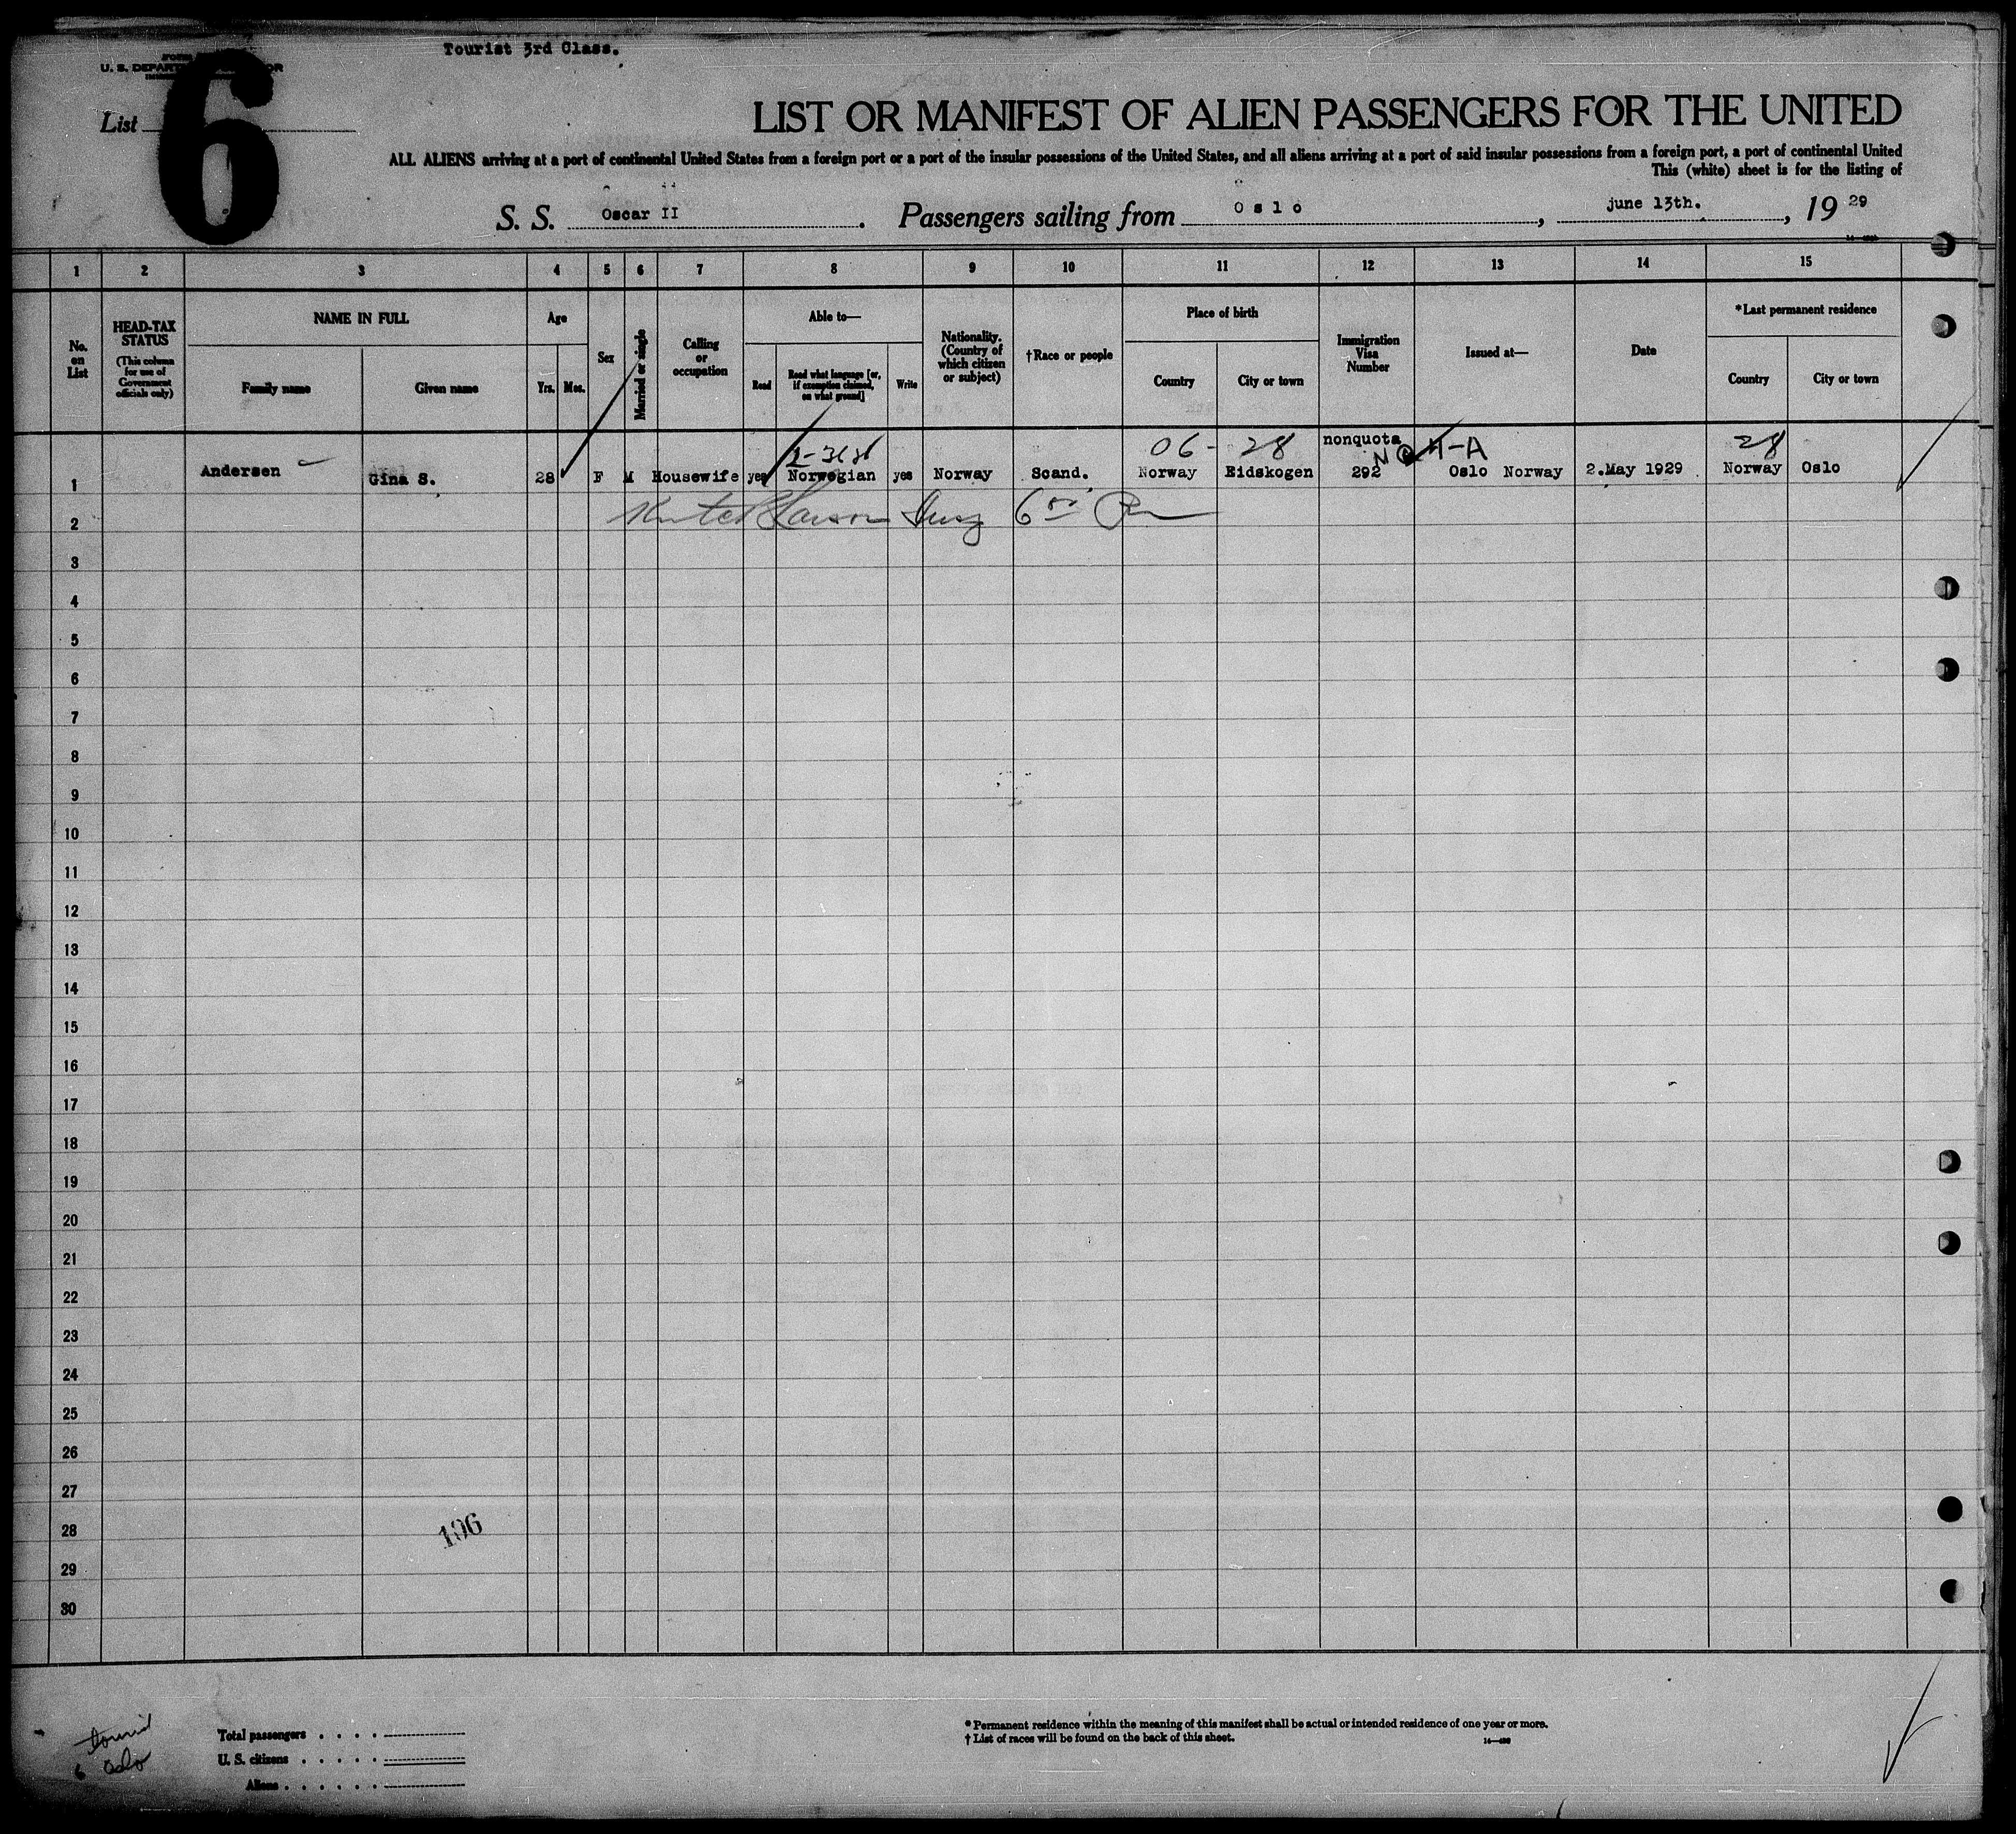 Tourist 3rd Class.
FORM
U. S. DEPARTMENT OF LABOR
List 6
LIST OR MANIFEST OF ALIEN PASSENGERS FOR THE UNITED
ALL ALIENS arriving at a port of continental United States from a foreign port or a port of the insular possessions of the United States, and all aliens arriving at a port of said insular possessions from a foreign port, a port of continental United
This (white) sheet is for the listing of
S. S. Oscar II. Passengers sailing from Oslo, june 13th., 19 29
1 2 3 4 5 6 7 8 9 10 11 12 13 14 15
No. on List
HEAD-TAX STATUS
(This column for use of Government officials only)
NAME IN FULL
Family name
Given name
Age
Yrs.
Mos.
Sex
Married or single
Calling or occupation
Able to—
Read
Read what language [or, if exemption claimed, on what ground]
Write
Nationality. (Country of which citizen or subject)
†Race or people
Place of birth
Country
City or town
Immigration Visa Number
Issued at—
Date
*Last permanent residence
Country
City or town
06- 28 nonquota 4-A 28
NQ
1 Andersen Gina S. 28 F M Housewife yes Norwegian yes Norway Scand. Norway Eidskogen 292 Oslo Norway 2.May 1929 Norway Oslo
2
3
4
5
6
7
8
9
10
11
12
13
14
15
16
17
18
19
20
21
22
23
24
25
26
27
28
106
29
30
Total passengers
U. S. citizens
Aliens
* Permanent residence within the meaning of this manifest shall be actual or intended residence of one year or more.
† List of races will be found on the back of this sheet.
Oslo